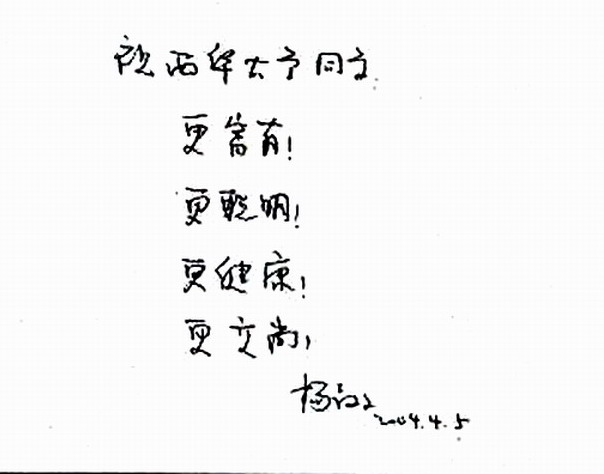 祝西华大学同学
更富有!
更聪明!
更健康!
更高尚!
杨
2004.4.5